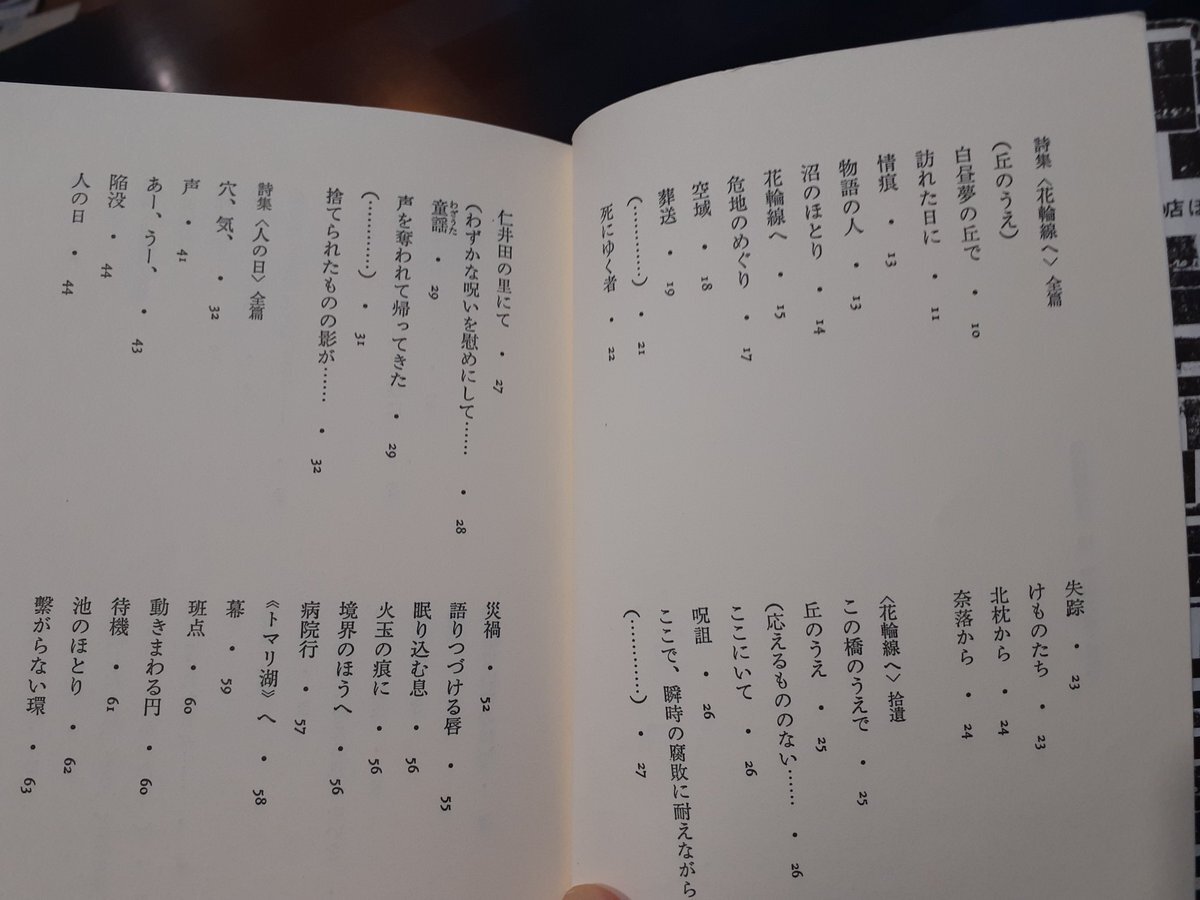 詩集〈花輪線へ〉全篇
(丘のうえ)
白昼夢の丘で・10
訪れた日に・11
情痕・13
物語の人・13
沼のほとり・14
花輪線へ・15
危地のめぐり・17
空域・18
葬送・19
(…………)・21
死にゆく者・22
失踪・23
けものたち・23
北枕から・24
奈落から・24
〈花輪線へ〉拾遺
この橋のうえで・25
丘のうえ・25
(応えるもののない……・26
ここにいて・26
呪詛・26
ここで、瞬時の腐敗に耐えながら
(…………)・27
仁井田の里にて・27
(わずかな呪いを慰めにして……・28
童謡・29
わざうた
声を奪われて帰ってきた・29
(…………)・31
捨てられたものの影が……・32
詩集〈人の日〉全篇
穴、気、・32
声・41
あー、うー、・43
陥没・44
人の日・44
災禍・52
語りつづける唇・55
眠り込む息・56
火玉の痕に・56
境界のほうへ・56
病院行・57
《トマリ湖》へ・58
幕・59
班点・60
動きまわる円・60
待機・61
池のほとり・62
繋がらない環・63